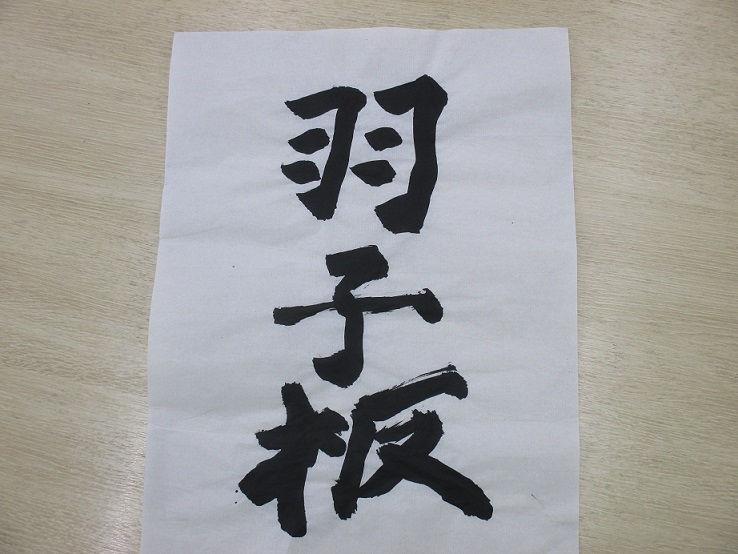 羽子板